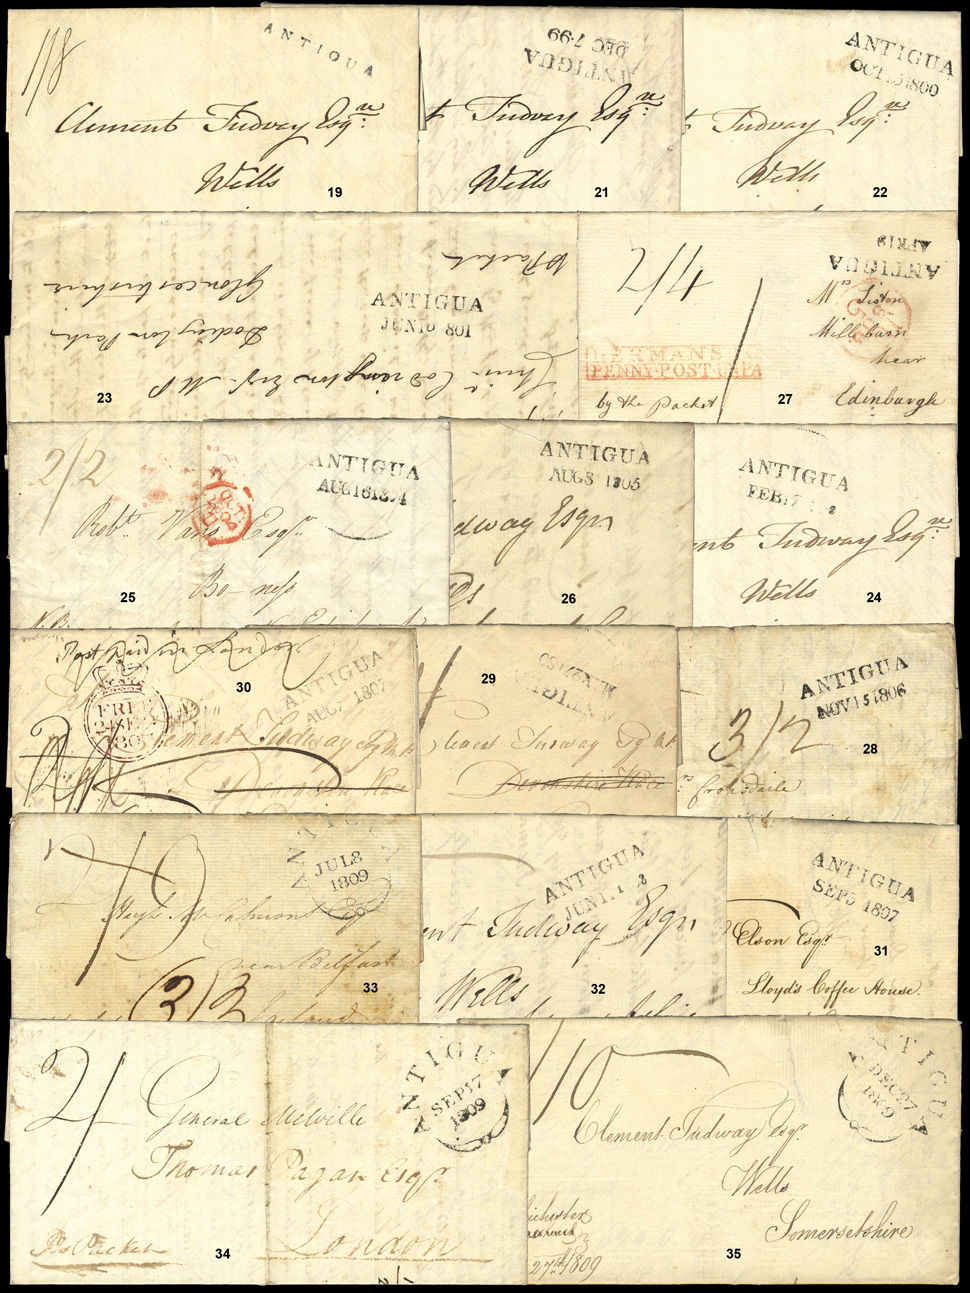 1/8
ANTIGUA
Clement Tudway Esqre
Wells
19
ANTIGUA
DEC 7.99
t Tudway Esqre
Wells
21
ANTIGUA
OCT 1800
t Tudway Esqre
Wells
22
Packet
Gloucestershire
Dodington Park
ANTIGUA
JUN 10 801
Codrington Esqr MP
23
2/4
ANTIGUA
APR 19
Mrs Liston
Millburn
near
Edinburgh
PENNY POST UNPA
by the Packet
27
2/2
ANTIGUA
AUG 16 1804
Robt Vans Esqr
Bo-ness
25
ANTIGUA
AUG 8 1805
dway Esqr
26
ANTIGUA
FEB 17 2
ent Tudway Esqre
Wells
24
Post Paid
30
ANTIGUA
AUG 7 1807
FREE
1807
ement Tudway Esqr
29
ANTIGUA
Clement Tudway Esqr
Devonshire Place
ANTIGUA
NOV 15 1806
3/2
28
Croasdaile
ANTIGUA
JUL 8
1809
Hugh
near Belfast
33
(2/3 Ireland
ANTIGUA
JUN 1
ent Tudway Esqr
Wells
32
ANTIGUA
SEP 5 1807
Elson Esqr
31
Lloyd's Coffee House.
2/
ANTIGUA
SEP 17
1809
General Melville
Thomas Pagan Esqr
London
Pr Packet
34
/10
ANTIGUA
DEC 27
1809
Clement Tudway Esqr
Wells
Somersetshire
ichester
27th 1809
35